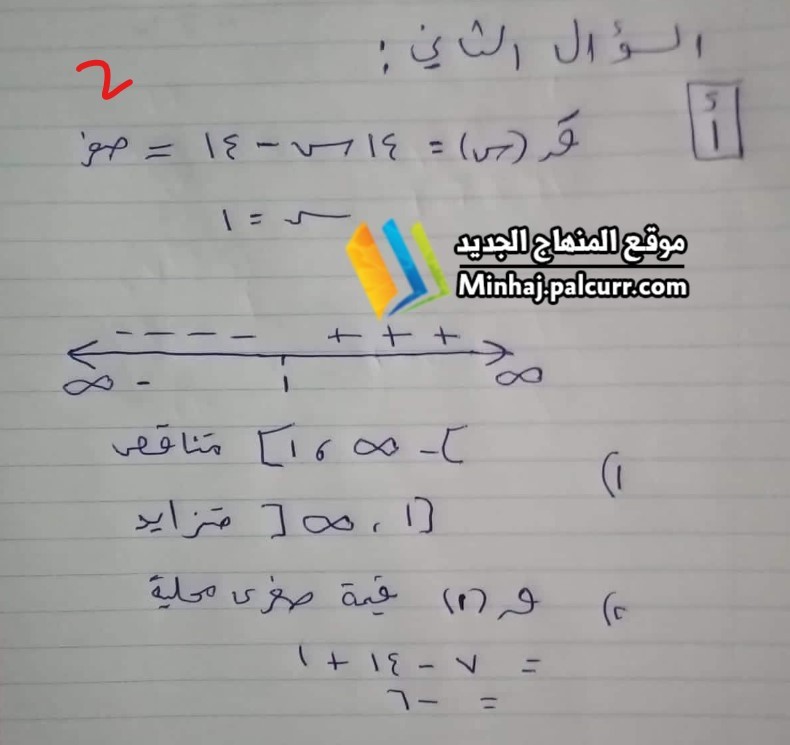 السؤال الثاني :
2
أ
قَ (س) = ١٤ س - ١٤ = صفر
س = ١
موقع المنهاج الجديد
Minhaj.palcurr.com
- - - - + + +
∞ - ١ ∞
١) ]-∞ ، ١] متناقص
[١ ، ∞[ متزايد
٢) ق (١) قيمة صغرى محلية
= ٧ - ١٤ + ١
= -٦